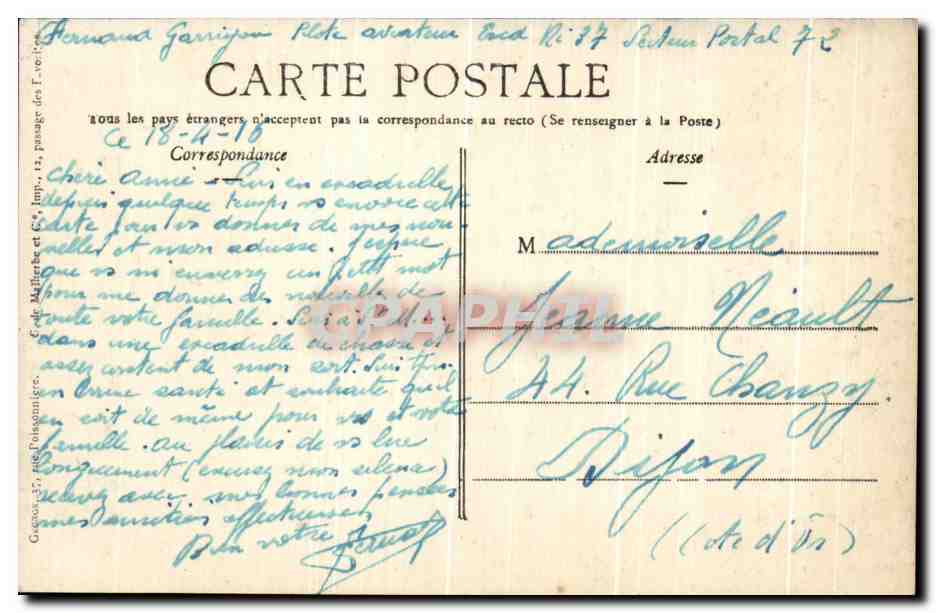 Fernand Garrigou Pilote aviateur Escd Ni 37 Secteur Postal 72
CARTE POSTALE
Tous les pays étrangers n'acceptent pas la correspondance au recto (Se renseigner à la Poste)
Ce 18-4-16
Correspondance
chère amie - suis en escadrille
depuis quelque temps vs envoie cette
carte pour vs donner de mes nou
velles et mon adresse. J'espère
que vs m'enverrez un petit mot
pour me donner des nouvelles de
toute votre famille. Suis à
dans une escadrille de chasse et
assez content de mon sort. Suis
en bonne santé et souhaite qu'il
en soit de même pour vs et votre
famille. Au plaisir de vs lire
longuement (excusez mon silence)
recevez avec mes bonnes pensées
mes amitiés affectueuses
Bien votre
Adresse
Mademoiselle
Jeanne Néault
44. Rue Chanzy.
Dijon
(Cote d'Or)
CPAPHIL
Gecaux, 37, rue Poissonnière. Cecile Malherbe et Cie, Imp., 12, passage des Favorites